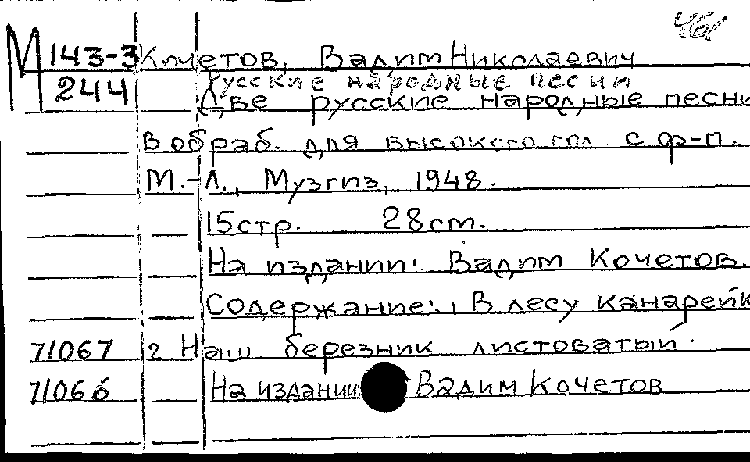 М 143-3 Кочетов, Вадим Николаевич
Русские народные песни
244 Две русские народные песни
в обраб. для высокого гол с ф-п.
М.-Л., Музгиз, 1948.
15 стр. 28 cm.
На издании: Вадим Кочетов.
Содержание: 1 В лесу канарейк
71067 2 Наш березник листоватый.
71066 На издании Вадим Кочетов